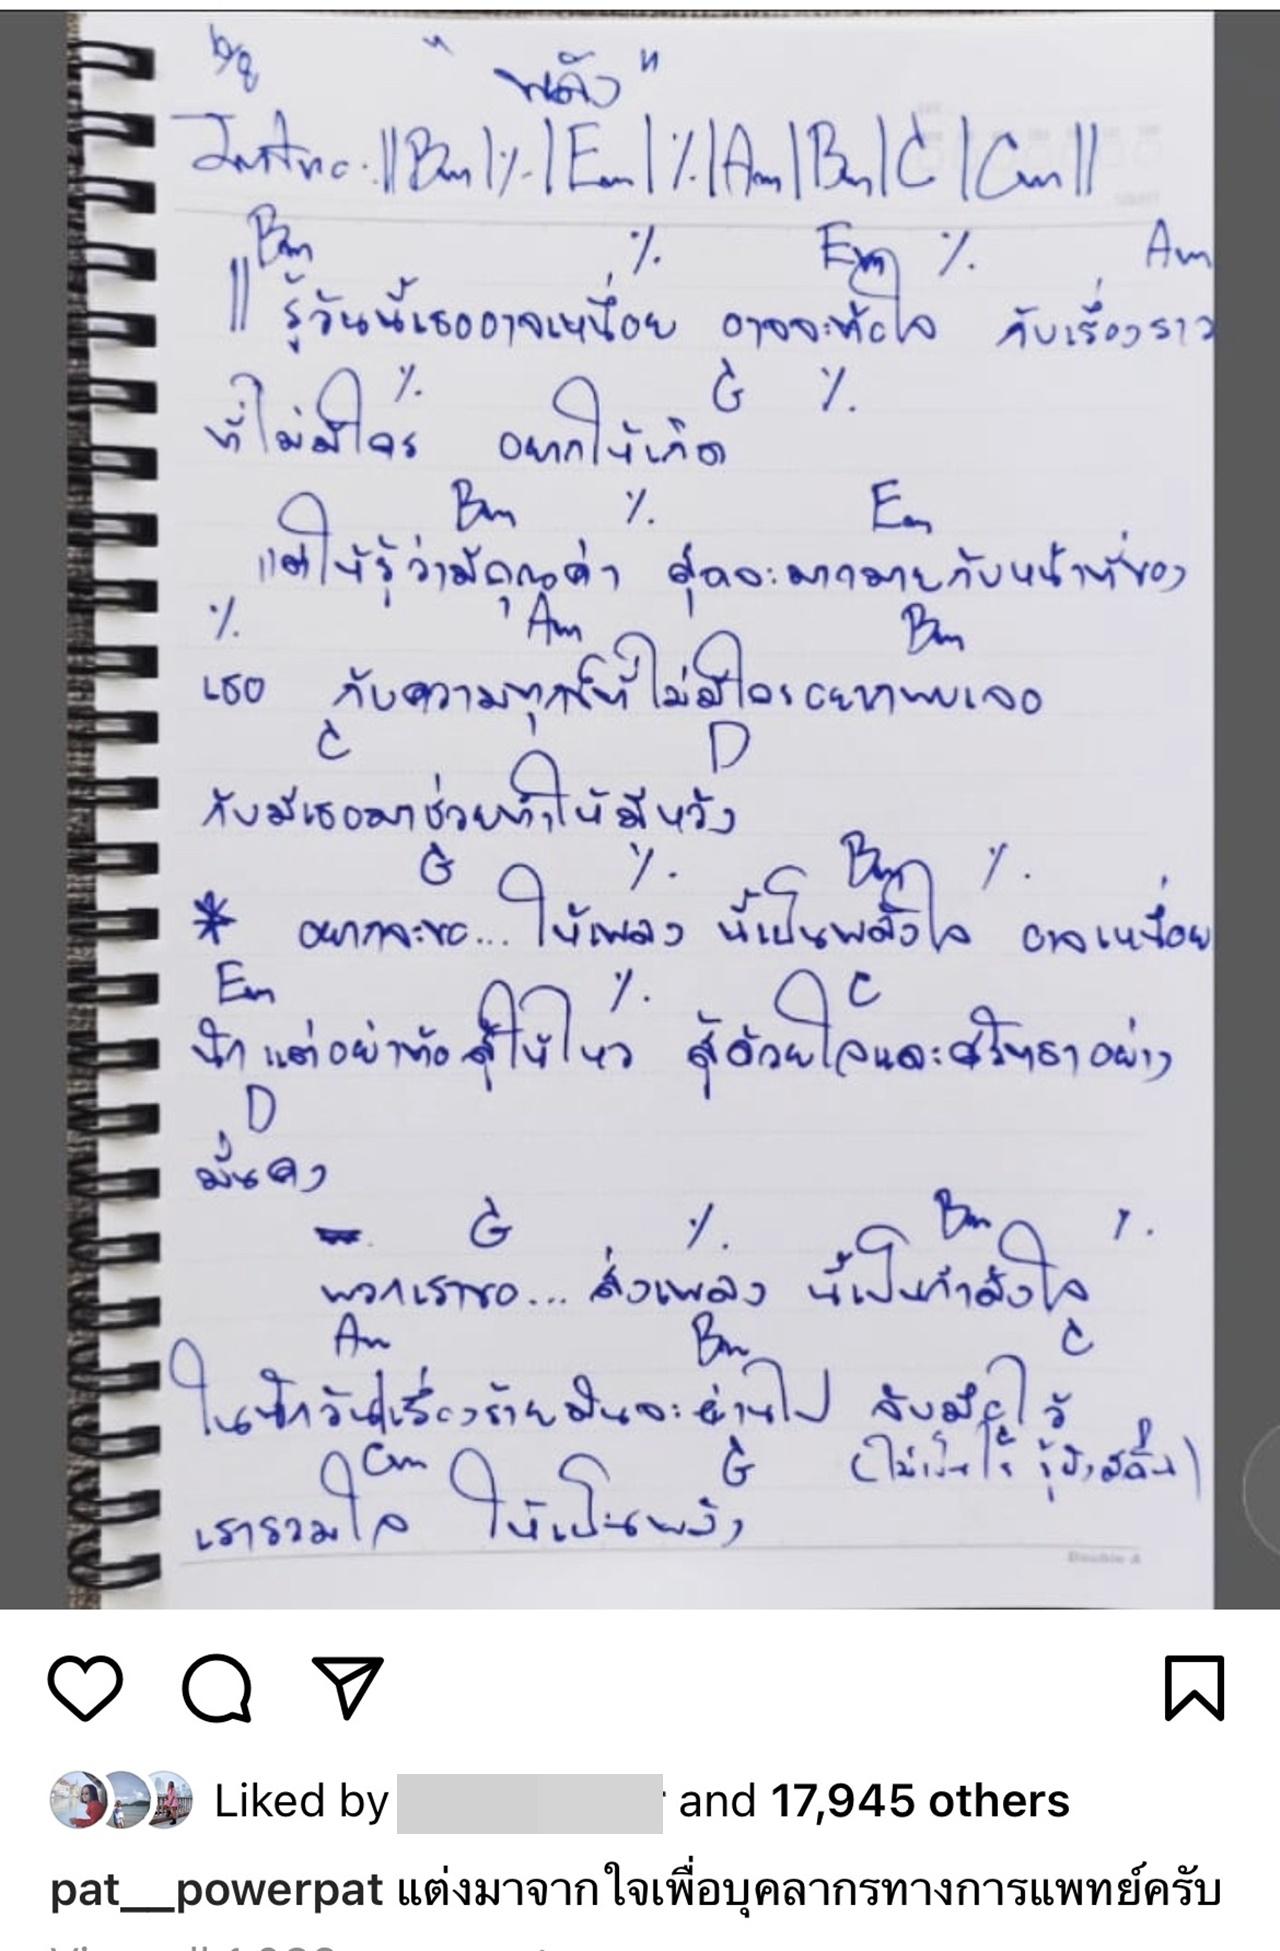 6/8
"พลัง"
Intro: || Bm | ٪ | Em | ٪ | Am | Bm | C | Cm ||
Bm ٪ Em ٪ Am
|| รู้วันนี้เธออาจเหนื่อย อาจจะท้อใจ กับเรื่องราว
٪ G ٪
ที่ไม่มีใคร อยากให้เกิด
Bm ٪ Em
แต่ให้รู้ว่ามีคุณค่า สุดจะมากมายกับหน้าที่ของ
٪ Am Bm
เธอ กับความทุกข์ที่ไม่มีใครอยากพบเจอ
C D
กับมีเธอมาช่วยทำให้มีหวัง
G ٪ Bm ٪
* อยากจะขอ... ให้เพลง นี้เป็นพลังใจ อาจเหนื่อย
Em ٪ C
นัก แต่อย่าท้อ สู้ให้ไหว สู้ด้วยใจและศรัทธาอย่าง
D
มั่นคง
G ٪ Bm ٪
พวกเราขอ... ส่งเพลง นี้เป็นกำลังใจ
Am Bm C
ในสักวันเรื่องร้ายมันจะผ่านไป จับมือไว้
Cm G
เรารวมใจ ให้เป็นพลัง
Double A
Liked by and 17,945 others
pat__powerpat แต่งมาจากใจเพื่อบุคลากรทางการแพทย์ครับ